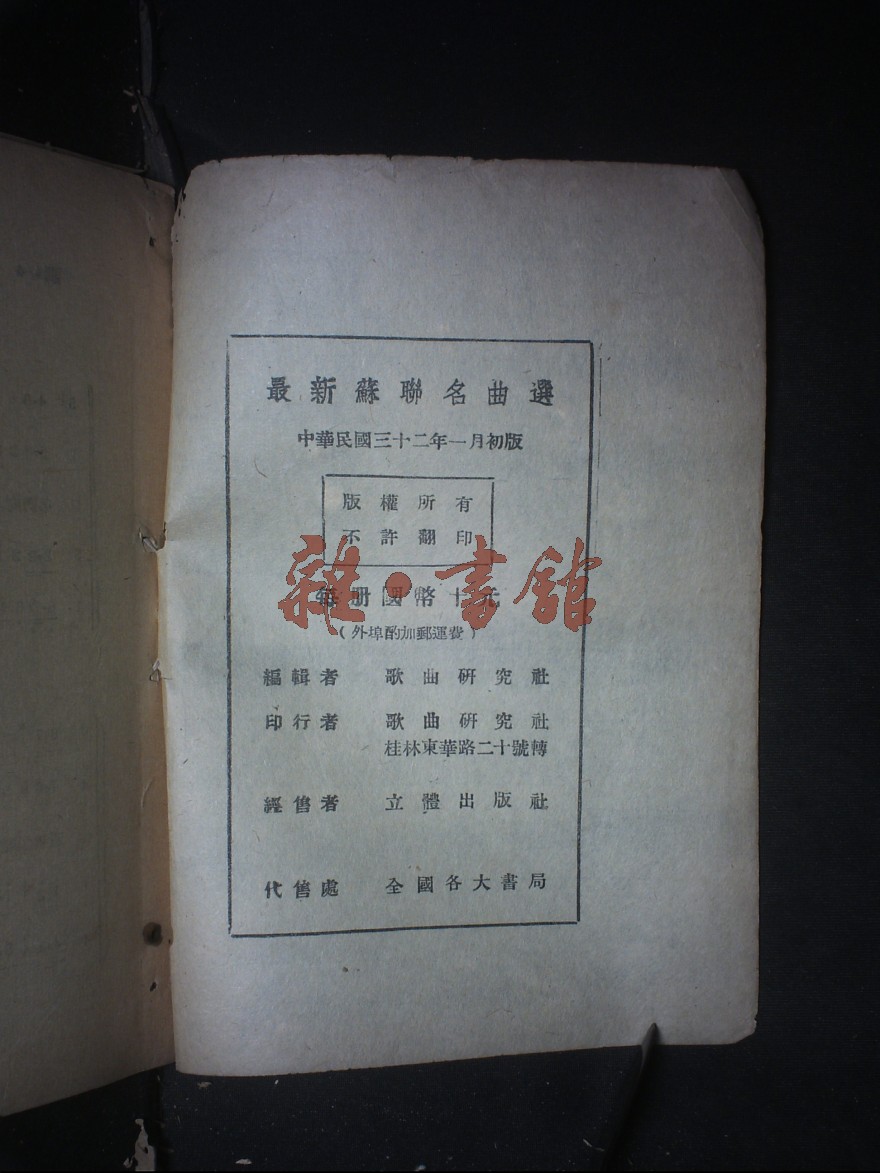 最新蘇聯名曲選
中華民國三十二年一月初版
版權所有
不許翻印
雜·書館
每册國幣十元
（外埠酌加郵運費）
編輯者 歌曲研究社
印行者 歌曲研究社
桂林東華路二十號轉
經售者 立體出版社
代售處 全國各大書局